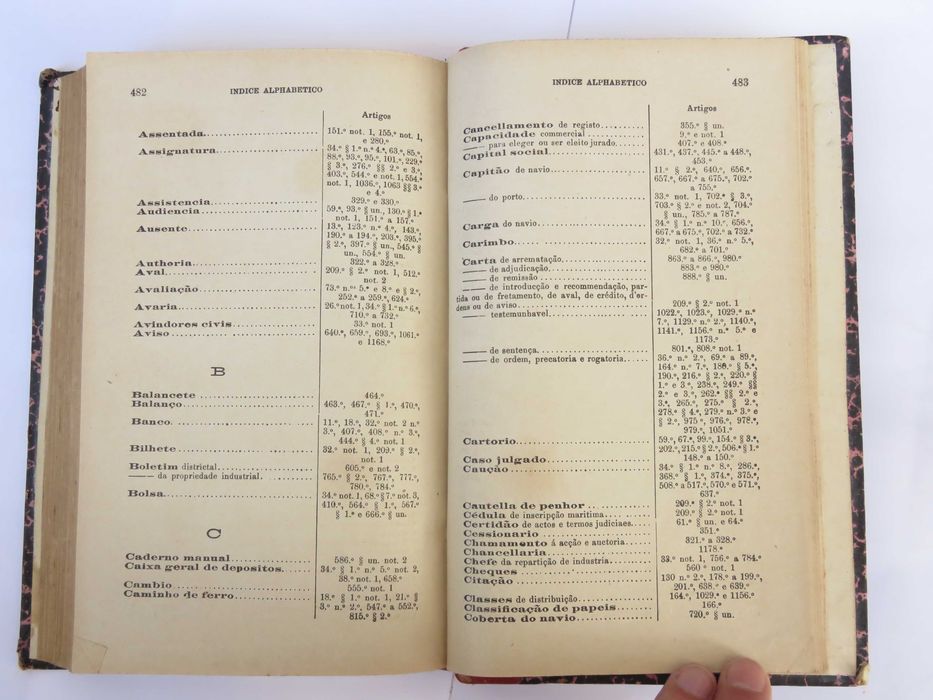 482
INDICE ALPHABETICO
Artigos
Assentada........................ 151.º not. 1, 155.º not. 1,
e 280.º
Assignatura...................... 34.º § 1.º n.º 4.º, 63.º, 85.º,
88.º, 93.º, 95.º, 101.º, 229.º
§ 3.º, 276.º §§ 2.º e 3.º,
403.º, 544.º e not. 1, 554.º
not. 1, 1036.º, 1063 §§ 3.º
e 4.º
Assistencia...................... 329.º e 330.º
Audiencia........................ 59.º, 93.º § un., 130.º § 1.º
not. 1, 151.º a 157.º
Ausente.......................... 13.º, 123.º n.º 4.º, 143.º,
190.º a 194.º, 203.º, 395.º
§ 2.º, 397.º § un., 545.º §
un., 554.º § un.
Authoria......................... 322.º a 328.º
Aval............................. 209.º § 2.º not. 1, 512.º
not. 2
Avaliação........................ 73.º n.os 5.º e 8.º e § 2.º,
252.º a 259.º, 624.º
Avaria........................... 26.º not. 1, 34.º § 1.º n.º 6.º,
710.º a 732.º
Avindores civis.................. 33.º not. 1
Aviso............................ 640.º, 659.º, 693.º, 1061.º
e 1168.º
B
Balancete ....................... 464.º
Balanço.......................... 463.º, 467.º § 1.º, 470.º,
471.º
Banco............................ 11.º, 18.º, 32.º not. 2 n.º
3.º, 407.º, 408.º n.º 3.º,
444.º § 4.º not. 1
Bilhete.......................... 32.º not. 1, 209.º § 2.º,
not. 1
Boletim districtal............... 605.º e not. 2
—— da propriedade industrial. .......... 765.º § 2.º, 767.º, 777.º,
780.º, 784.º
Bolsa............................ 34.º not. 1, 68.º § 7.º not. 3,
410.º, 564.º § 1.º, 567.º
§ 1.º e 666.º § un.
C
Caderno manual................... 586.º § un. not. 2
Caixa geral de depositos......... 34.º § 1.º n.º 5.º not. 2,
38.º not. 1, 658.º
Cambio .......................... 555.º not. 1
Caminho de ferro................. 18.º § 1.º not. 1, 21.º §
3.º n.º 2.º, 547.º a 552.º,
815.º § 2.º
INDICE ALPHABETICO
483
Artigos
Cancellamento de registo.......... 355.º § un.
Capacidade commercial ............ 9.º e not. 1
—— para eleger ou ser eleito jurado....... 407.º e 408.º
Capital social.................... 431.º, 437.º, 445.º a 448.º,
453.º
Capitão de navio.................. 11.º § 2.º, 640.º, 656.º,
657.º, 667.º a 675.º, 702.º
a 755.º
—— do porto....................... 33.º not. 1, 702.º § 3.º,
703.º § 2.º e not. 2, 704.º
§ un., 785.º a 787.º
Carga do navio.................... 34.º § 1.º n.º 10.º, 656.º,
667.º a 675.º, 702.º a 732.º
Carimbo........................... 32.º not. 1, 36.º n.º 5.º,
682.º a 701.º
Carta de arrematação.............. 863.º a 866.º, 980.º
—— de adjudicação................. 883.º e 980.º
—— de remissão ................... 888.º § un.
—— de introducção e recommendação, par-
tida ou de fretamento, de aval, de crédito, d'or-
dens ou de aviso.................. 209.º § 2.º not. 1
—— testemunhavel.................. 1022.º, 1023.º, 1029.º n.º
7.º, 1129.º n.º 2.º, 1140.º,
1141.º, 1156.º n.º 5.º e
1173.º
—— de sentença.................... 801.º, 808.º not. 1
—— de ordem, precatoria e rogatoria...... 36.º n.º 2.º, 69.º a 89.º,
164.º n.º 7.º, 180.º § 5.º,
190.º, 216.º § 2.º, 220.º §
1.º e 3.º, 238.º, 249.º §§
2.º e 3.º, 262.º §§ 2.º e
3.º, 265.º, 275.º § 2.º,
278.º § 4.º, 279.º n.º 3.º e
§ 2.º, 975.º, 976.º, 978.º,
979.º, 1051.º
Cartorio.......................... 59.º, 67.º, 99.º, 154.º § 3.º,
202.º, 215.º § 2.º, 506.º § 1.º
Caso julgado...................... 148.º a 150.º
Caução............................ 34.º § 1.º n.º 8.º, 286.º,
368.º § 1.º, 374.º, 375.º,
508.º a 517.º, 570.º e 571.º,
637.º
Cautella de penhor ............... 209.º § 2.º not. 1
Cédula de inscripção maritima..... 209.º § 2.º not. 1
Certidão de actos e termos judiciaes..... 61.º § un. e 64.º
Cessionario ...................... 351.º
Chamamento á acção e auctoria..... 321.º a 328.º
Chancellaria...................... 1178.º
Chefe da repartição de industria.. 33.º not. 1, 756.º a 784.º
Cheques .......................... 560º not. 1
Citação .......................... 130 n.º 2.º, 178.º a 199.º,
201.º, 638.º e 639.º
Classes de distribuição........... 164.º, 1029.º e 1156.º
Classificação de papeis........... 166.º
Coberta do navio.................. 720.º § un.